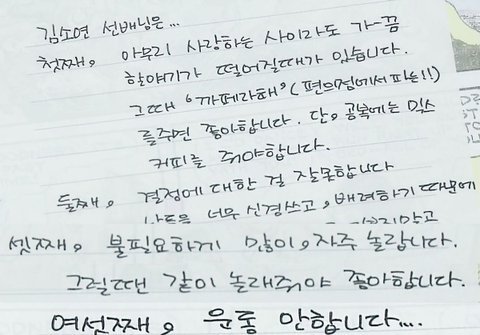 김소연 선배님은...
첫째, 아무리 사랑하는 사이라도 가끔
할얘기가 떨어질때가 있습니다.
그때 '까페라떼' (편의점에서파는!!)
를주면 좋아합니다. 단, 공복에는 믹스
커피를 줘야합니다.
둘째, 결정에 대한 걸 잘못합니다
너무 신경쓰고, 배려하기 때문에
셋째, 불필요하게 많이, 자주 놀랍니다.
그럴땐 같이 놀래줘야 좋아합니다.
여섯째, 운동 안합니다...